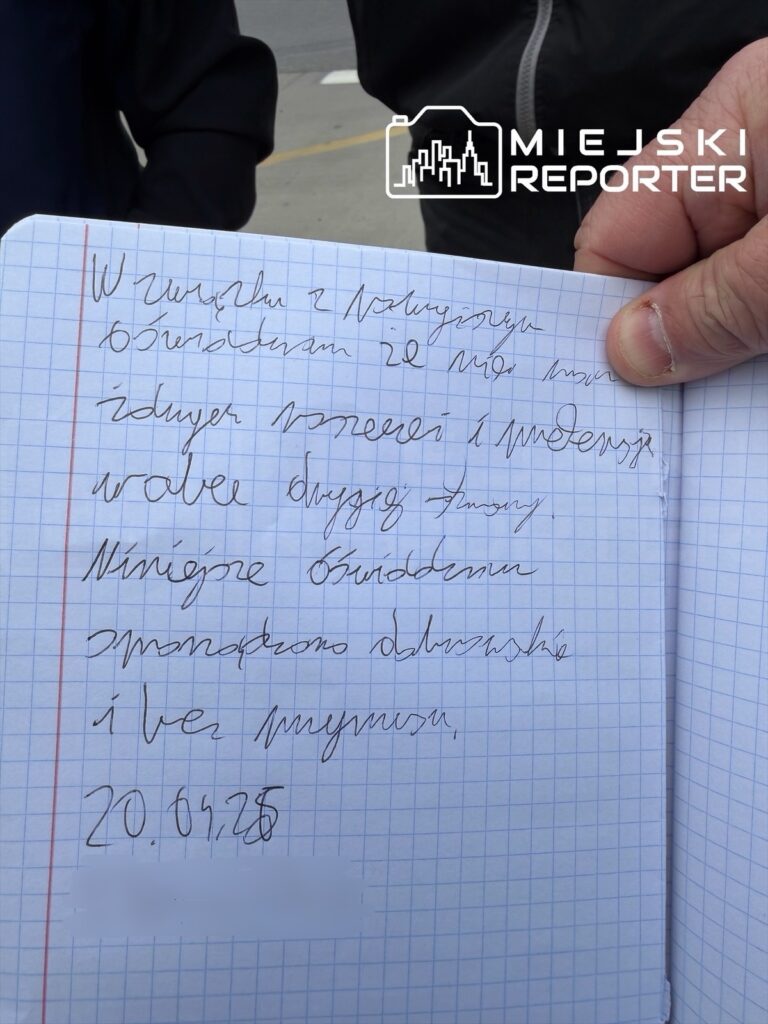 MIEJSKI
REPORTER
W związku z
oświadczam że nie
żadnych roszczeń i pretensji
wobec drugiej strony.
Niniejsze oświadczenie
sporządzono dobrowolnie
i bez przymusu.
20.04.25